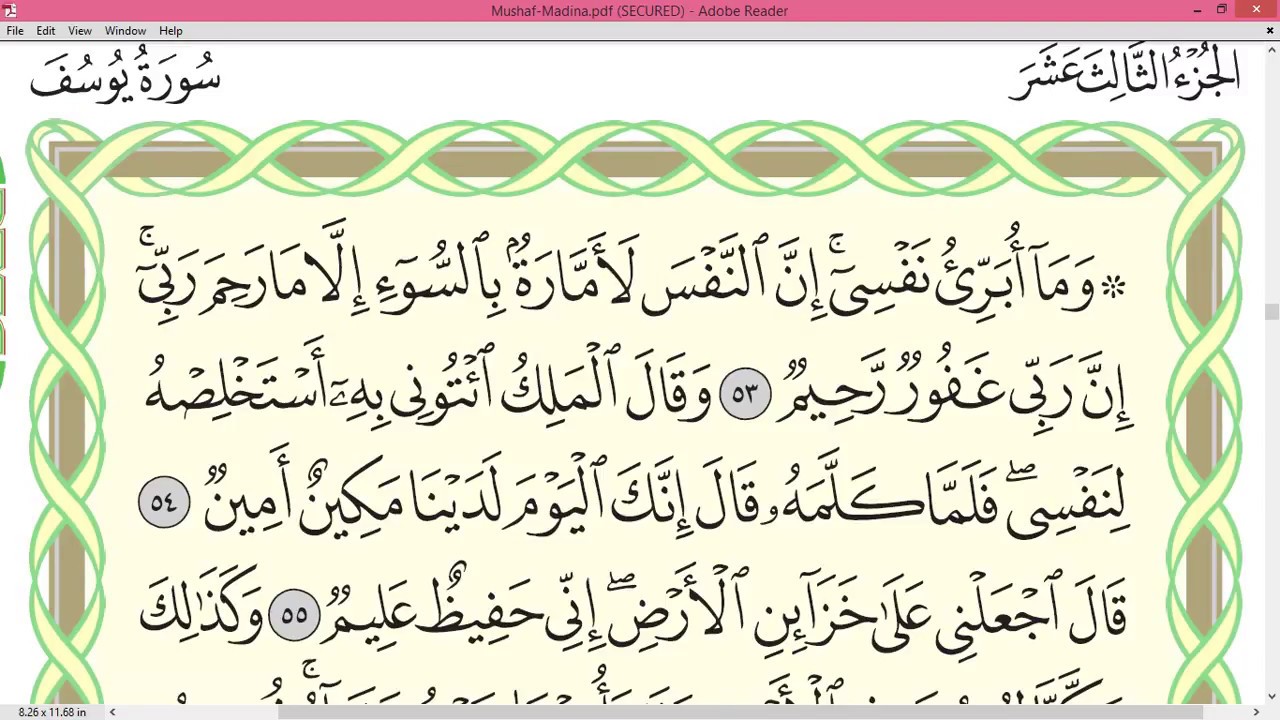 Mushaf-Madina.pdf (SECURED) - Adobe Reader
File Edit View Window Help
الجُزْءُ الثَّالِثَ عَشَرَ
سُورَةُ يُوسُفَ
۞ وَمَآ أُبَرِّئُ نَفْسِىٓ ۚ إِنَّ ٱلنَّفْسَ لَأَمَّارَةُۢ بِٱلسُّوٓءِ إِلَّا مَا رَحِمَ رَبِّىٓ ۚ
إِنَّ رَبِّى غَفُورٌ رَّحِيمٌ ٥٣ وَقَالَ ٱلْمَلِكُ ٱئْتُونِى بِهِۦٓ أَسْتَخْلِصْهُ
لِنَفْسِى ۖ فَلَمَّا كَلَّمَهُۥ قَالَ إِنَّكَ ٱلْيَوْمَ لَدَيْنَا مَكِينٌ أَمِينٌ ٥٤
قَالَ ٱجْعَلْنِى عَلَىٰ خَزَآئِنِ ٱلْأَرْضِ ۖ إِنِّى حَفِيظٌ عَلِيمٌ ٥٥ وَكَذَٰلِكَ
8.26 x 11.68 in